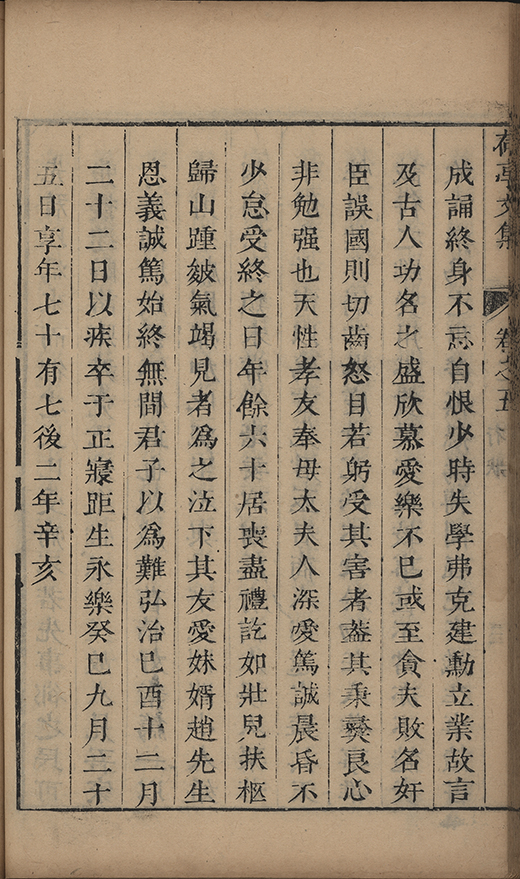 文集
卷之五
成誦終身不忘自恨少時失學弗克建勳立業故言
及古人功名之盛欣慕愛樂不已或至貪夫敗名奸
臣誤國則切齒怒目若躬受其害者葢其秉彜良心
非勉强也天性孝友奉母太夫人深愛篤誠晨昏不
少怠受終之日年餘六十居喪盡禮訖如壯兒扶柩
歸山踵皴氣竭見者爲之泣下其友愛妹婿趙先生
恩義誠篤始終無間君子以爲難弘治己酉十二月
二十二日以疾卒于正寢距生永樂癸巳九月二十
五日享年七十有七後二年辛亥